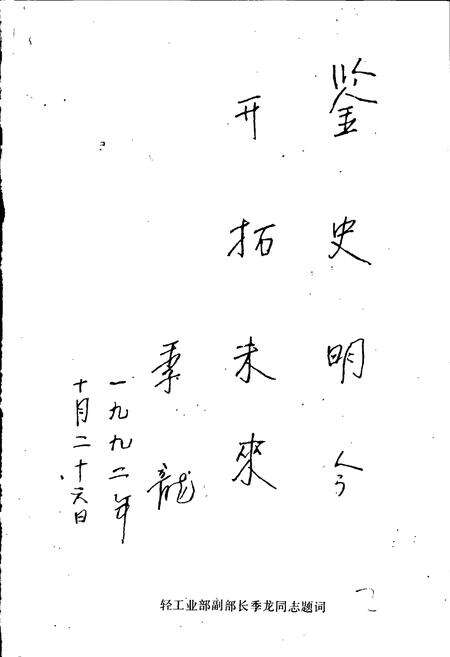 鉴史明今
开拓未來
季龙
一九九二年
十月二十六日
轻工业部副部长季龙同志题词